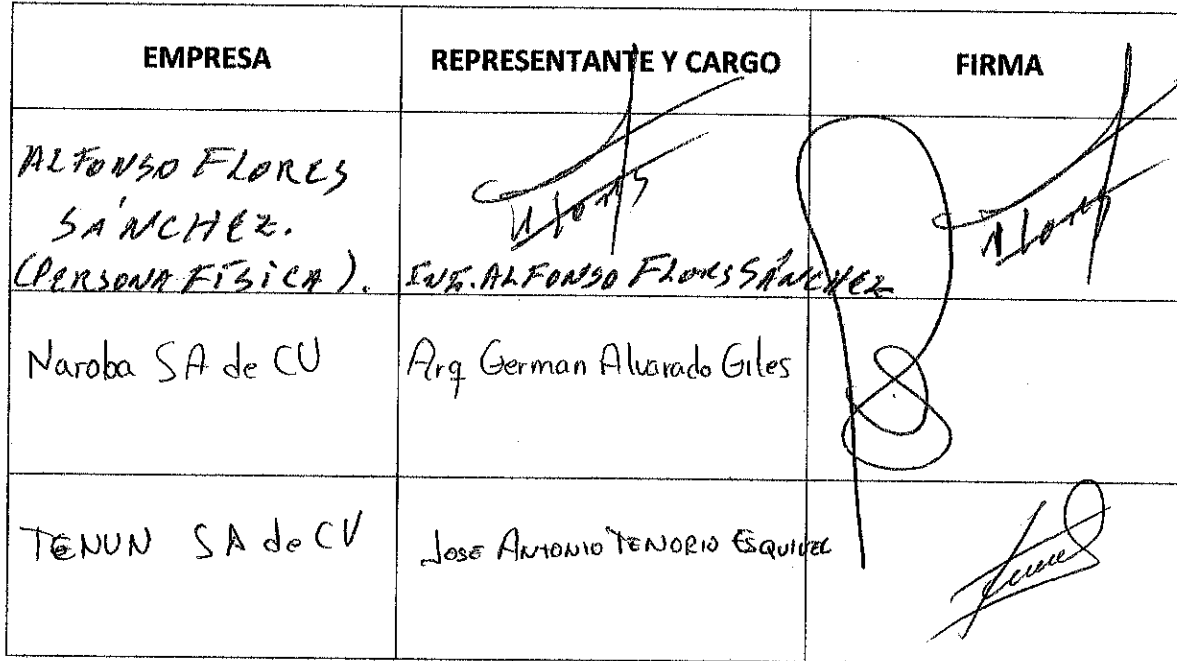 EMPRESA
REPRESENTANTE Y CARGO
FIRMA
ALFONSO FLORES
SÁNCHEZ.
(PERSONA FÍSICA).
ING. ALFONSO FLORES SÁNCHEZ
Naroba SA de CV
Arq German Alvarado Giles
TENUN SA de CV
JOSE ANTONIO TENORIO ESQUIVEL